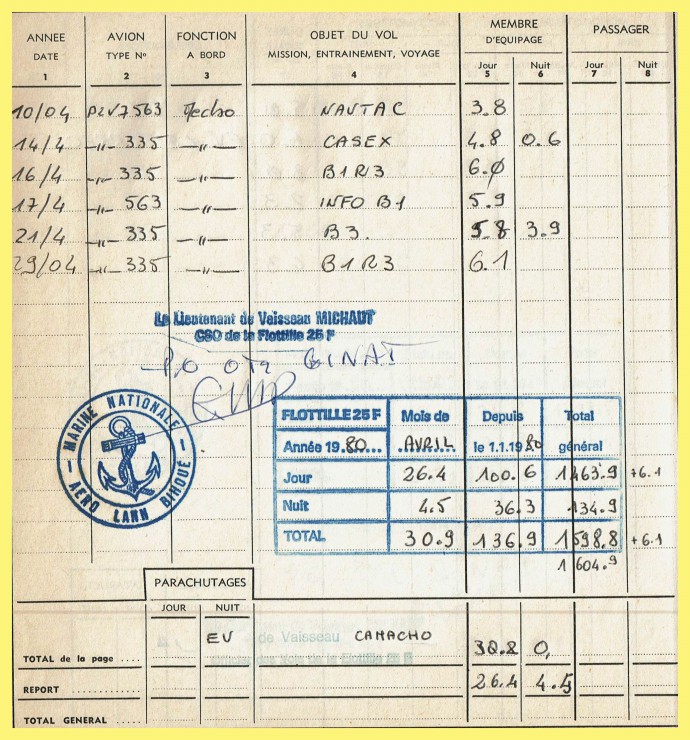 ANNEE AVION FONCTION OBJET DU VOL MEMBRE D'EQUIPAGE PASSAGER
DATE TYPE No A BORD MISSION, ENTRAINEMENT, VOYAGE Jour Nuit Jour Nuit
1 2 3 4 5 6 7 8
10/04 P2V7 563 Mecbo NAVTAC 3.8
14/4 -"- 335 -"- CASEX 4.8 0.6
16/4 -"- 335 -"- B1R3 6.0
17/4 -"- 563 -"- INFO B1 5.9
21/4 -"- 335 -"- B3. 5.8 3.9
29/04 -"- 335 -"- B1R3 6.1
Le Lieutenant de Vaisseau MICHAUT
CSO de la Flottille 25 F
P.O GINAT
MARINE NATIONALE
AERO LANN BIHOUÉ
FLOTTILLE 25 F Mois de Depuis Total
Année 19.80... AVRIL le 1.1.1980 général
Jour 26.4 100.6 1463.9 +6.1
Nuit 4.5 36.3 134.9
TOTAL 30.9 136.9 1598.8 +6.1
1604.9
PARACHUTAGES
JOUR NUIT
EV de Vaisseau CAMACHO
TOTAL de la page .... 0,
REPORT 26.4 4.5
TOTAL GENERAL